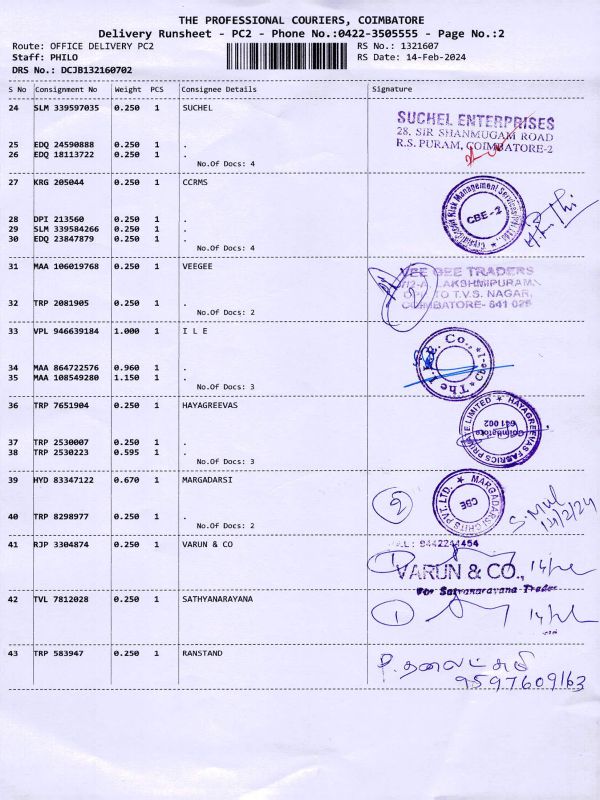 THE PROFESSIONAL COURIERS, COIMBATORE
Delivery Runsheet - PC2 - Phone No.:0422-3505555 - Page No.:2
Route: OFFICE DELIVERY PC2 RS No.: 1321607
Staff: PHILO RS Date: 14-Feb-2024
DRS No.: DCJB132160702
S No Consignment No Weight PCS Consignee Details Signature
24 SLM 339597035 0.250 1 SUCHEL
SUCHEL ENTERPRISES
28, SIR SHANMUGAM ROAD
R.S. PURAM, COIMBATORE-2
25 EDQ 24590888 0.250 1 .
26 EDQ 18113722 0.250 1 .
No.Of Docs: 4
27 KRG 205044 0.250 1 CCRMS
CBE-2
28 DPI 213560 0.250 1 .
29 SLM 339584266 0.250 1 .
30 EDQ 23847879 0.250 1 .
No.Of Docs: 4
31 MAA 106019768 0.250 1 VEEGEE
VEE GEE TRADERS
LAKSHMIPURAM
TO T.V.S. NAGAR,
COIMBATORE- 641 025
32 TRP 2081905 0.250 1 .
No.Of Docs: 2
33 VPL 946639184 1.000 1 I L E
34 MAA 864722576 0.960 1 .
35 MAA 108549280 1.150 1 .
No.Of Docs: 3
36 TRP 7651904 0.250 1 HAYAGREEVAS
HAYAGREEVAS FABRICS PRIVATE LIMITED
Coimbatore
641 002
37 TRP 2530007 0.250 1 .
38 TRP 2530223 0.595 1 .
No.Of Docs: 3
39 HYD 83347122 0.670 1 MARGADARSI
MARGADARSI CHITS PVT.LTD.
CBE
2
14/2/24
40 TRP 8298977 0.250 1 .
No.Of Docs: 2
41 RJP 3304874 0.250 1 VARUN & CO
9442244454
VARUN & CO.,
For Satyanarayana Trader
42 TVL 7812028 0.250 1 SATHYANARAYANA
1
43 TRP 583947 0.250 1 RANSTAND
9597609163